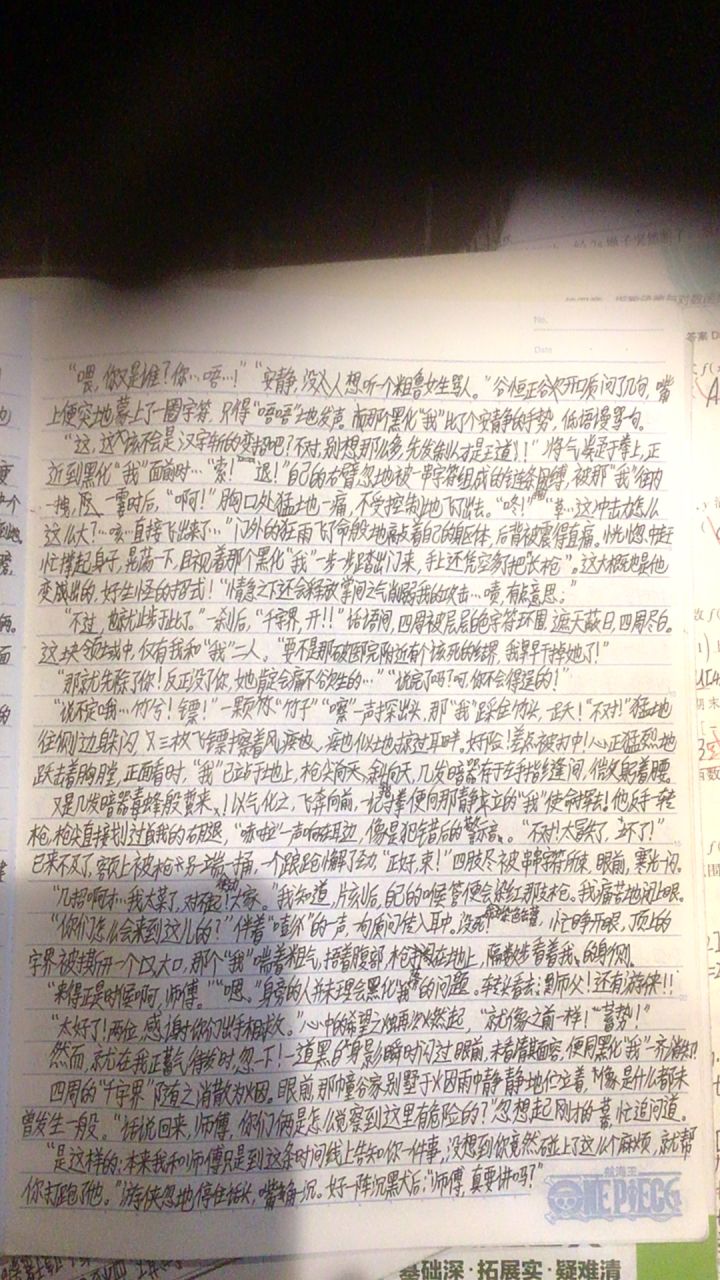 No.
Date
答案
“喂,你又是谁?你…唔…!”“安静,没人想听一个粗鲁女生骂人。”谷恒正欲开口质问了几句,嘴
上便突地蒙上了一圈字符,只得“唔唔”地发声。而那个黑化“我”比了个安静的手势,低语慢骂句。
“这,这大该不会是汉字新的变招吧?不对,别想那么多,先发制人才是王道!!”将气凝于拳上,正
近到黑化“我”面前时…“索!”“退!”自己的右臂忽地被一串字符组成的链条困缚,被那“我”往内
一拽,一霎时后,“啊!”胸口处猛地一痛,不受控制地飞了出去。“咚!”“草…这冲击力怎么
这么大?…咳…直接飞出来了…”门外的狂雨飞了命般地敲击着自己的躯体,后背被震得直痛。恍惚中赶
忙撑起身子,晃荡一下,目视着那个黑化“我”一步步踏出门来,手上还凭空多了把“长枪”。这大概也是他
变成出的,好生怪的招式!“情急之下还会释放掌间之气削弱我的攻击…啧,有点意思;”
“不过,也就止步于此了。”一刹后,“千字界,开!!”话语间,四周被层层白色字符环围,遮天蔽日,四周尽白。
这块领域中,仅有我和“我”二人。“要不是那破医院附近有个该死的结界,我早干掉她了!”
“那就先除了你!反正没了你,她肯定会痛不欲生的…”“说完了吗?呵,你不会得逞的!”
“说不定哦…竹兮!镖!”一颗颗“竹子”“嚓”一声探出头,那“我”踩住竹头,一跃!“不对!”猛地
往侧边躲闪,又三枚飞镖擦着风,疾也似地掠过耳畔。好险!差点被打中!心正猛烈地
跃击着胸膛,正面看时,“我”已站于地上,枪尖向天,斜向天,几发暗器存于左手指缝间,俏皮躬着腰
又是几发暗器毒蜂般蛰来,!以气化之,飞奔向前,一记手拳便向那静立的“我”使命挥去!他反手一转
枪,枪尖直接划过自我的右腿,“嘶啦”一声响在耳边,像是犯错后的警示言。“不对!大冒失了,坏了!”
已来不及了,额上被枪另端一捅,一个踉跄懈了劲,“正好,束!”四肢尽被串串字符所束,眼前,寒光一闪。
“几招啊才…我太菜了,对不起!大家。”我知道,片刻后,自己的喉管便会染红那支枪。我痛苦地闭上眼。
“你们怎么会来到这儿的?”伴着“喀怀”的一声,有质问传入耳中。没死!忙睁开眼,顶上的
字界被撕开一个大口,那个“我”喘着粗气,捂着腹部,枪掉在地上,隔数步看着我的身侧。
“来得正是时候啊,师傅。”“嗯。”身旁的人并未理会黑化“我”的问题。转头看去:是师父!还有游侠!!
“太好了!两位,感谢你们出手相救。”心中的希望之火再次燃起,“就像之前一样!”“蓄势!”
然而,就在我正蓄气得劲时,忽一下!一道黑白身影瞬时闪过眼前,未看清面容,便同黑化“我”一齐消失!
四周的“千字界”随之消散为烟。眼前,那幢谷家别墅于烟雨中静静地伫立着,似像是什么都未
曾发生一般。“话说回来,师傅,你们俩是怎么觉察到这里有危险的?”忽想起刚才的一幕,忙追问道。
“是这样的:本来我和师傅只是到这条时间线上告知你一件事,没想到你竟然碰上了这么个麻烦,就帮
你打跑了他。”游侠忽地停住话头,嘴角一沉。好一阵沉默后:“师傅,真要讲吗?”
航海王
ONE PIECE
基础深·拓展实·疑难清